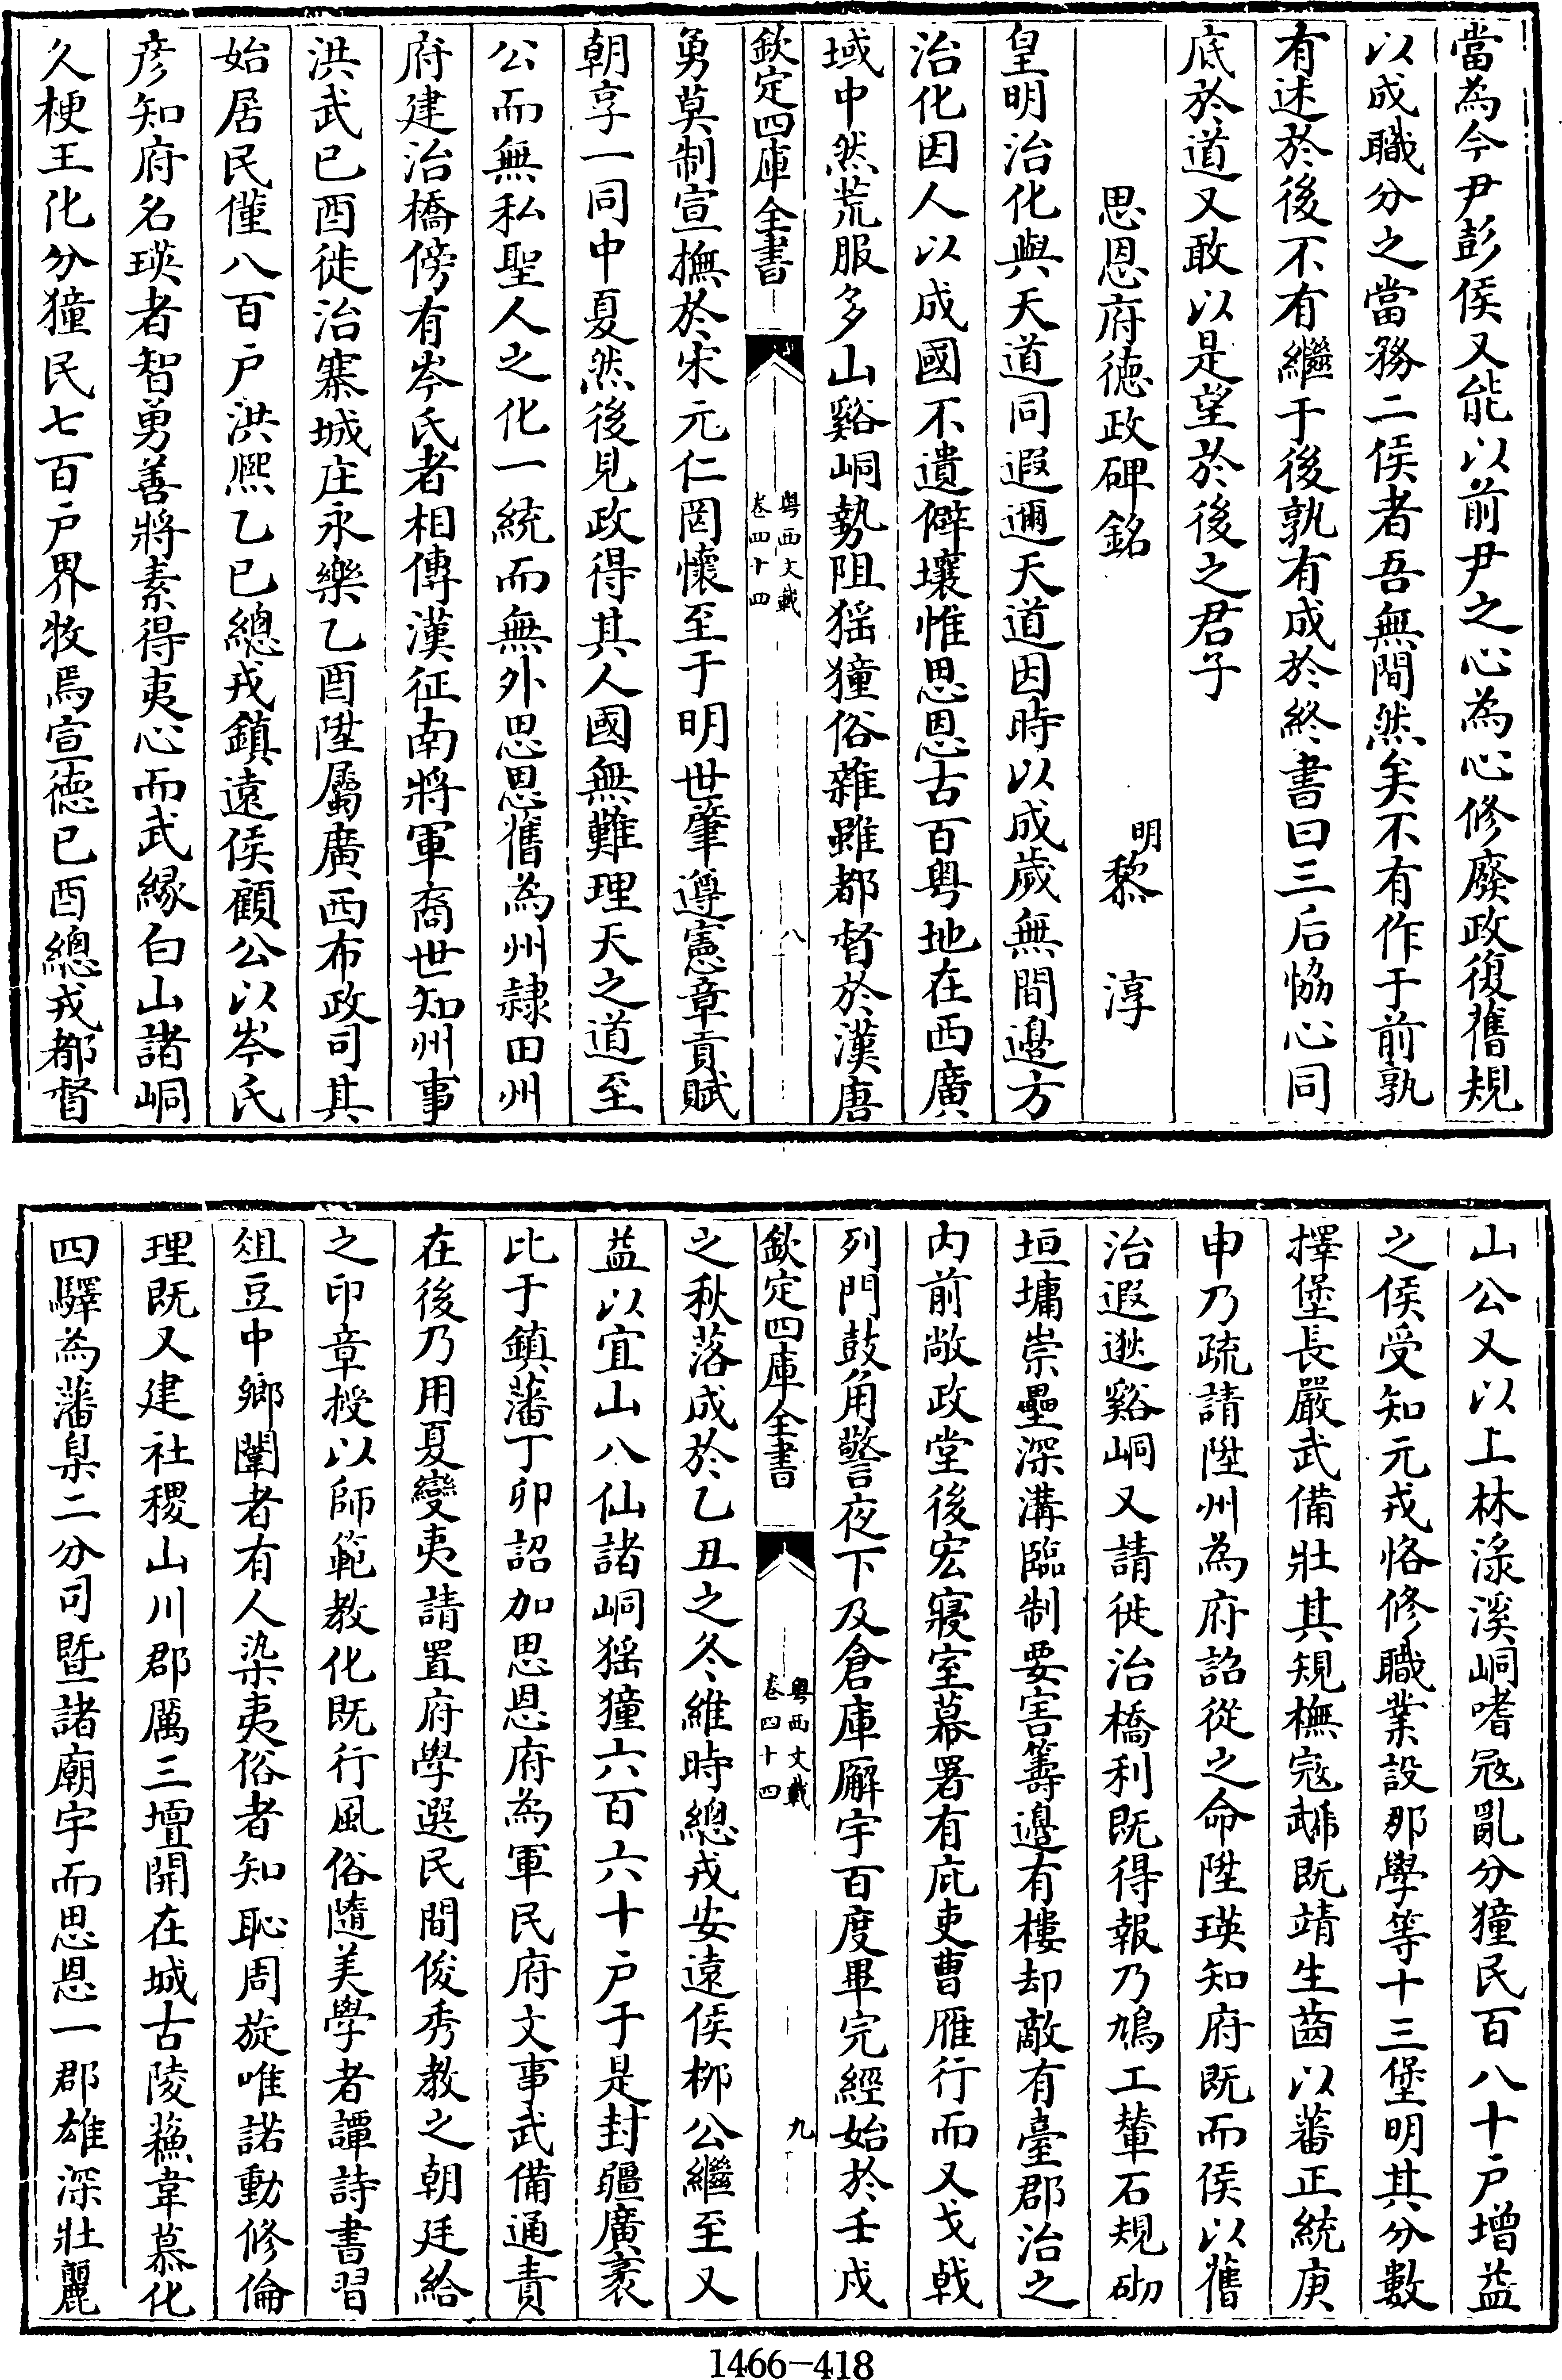 當為今尹彭侯又能以前尹之心為心修廢政復舊規
以成職分之當務二侯者吾無間然矣不有作于前孰
有述於後不有繼于後孰有成於終書曰三后恊心同
底於道又敢以是望於後之君子
思恩府德政碑銘 明 黎 淳
皇明治化與天道同遐邇天道因時以成歲無間邊方
治化因人以成國不遺僻壤惟思恩古百粤地在西廣
域中然荒服多山谿峒勢阻猺獞俗雜雖都督於漢唐
欽定四庫全書
粤西文載
卷四十四
八
勇莫制宣撫於宋元仁罔懷至于明世肇遵憲章貢賦
朝享一同中夏然後見政得其人國無難理天之道至
公而無私聖人之化一統而無外思恩舊為州隷田州
府建治橋傍有岑氏者相傳漢征南將軍裔世知州事
洪武已酉徙治寨城庄永樂乙酉陞屬廣西布政司其
始居民僅八百户洪熙乙已總戎鎮遠侯顧公以岑氏
彦知府名瑛者智勇善將素得夷心而武緣白山諸峒
久梗王化分獞民七百户界牧焉宣德已酉總戎都督
山公又以上林渌溪峒嗜宼亂分獞民百八十户增益
之侯受知元戎恪修職業設那學等十三堡明其分數
擇堡長嚴武備壯其規橅宼既靖生齒以蕃正統庚
申乃疏請陞州為府詔從之命陞瑛知府既而侯以舊
治遐逖谿峒又請徙治橋利既得報乃鳩工輦石規砌
垣墉崇壘深溝臨制要害籌邊有樓却敵有臺郡治之
内前敞政堂後宏寢室幕署有庇吏曹雁行而又戈㦸
列門鼓角警夜下及倉庫廨宇百度畢完經始於壬戍
欽定四庫全書
粤西文載
卷四十四
九
之秋落成於乙丑之冬維時總戎安遠侯柳公繼至又
益以宜山八仙諸峒猺獞六百六十户于是封疆廣袤
比于鎮藩丁卯詔加思恩府為軍民府文事武備通責
在後乃用夏變夷請置府學選民間俊秀教之朝廷給
之印章授以師範教化既行風俗隨美學者譚詩書習
俎豆中鄉闈者有人染夷俗者知恥周旋唯諾動修倫
理既又建社稷山川郡厲三壇開在城古陵蘓韋慕化
四驛為藩臬二分司暨諸廟宇而思恩一郡雄深壯麗
1466-418